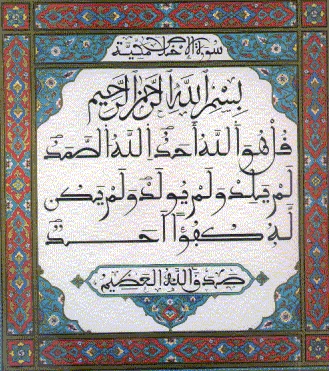 سورة الإخلاص مكية
بسم الله الرحمن الرحيم
قُلْ هُوَ اللَّهُ أَحَدٌ اللَّهُ الصَّمَدُ
لَمْ يَلِدْ وَلَمْ يُولَدْ وَلَمْ يَكُن
لَّهُ كُفُوًا أَحَدٌ
صدق الله العظيم